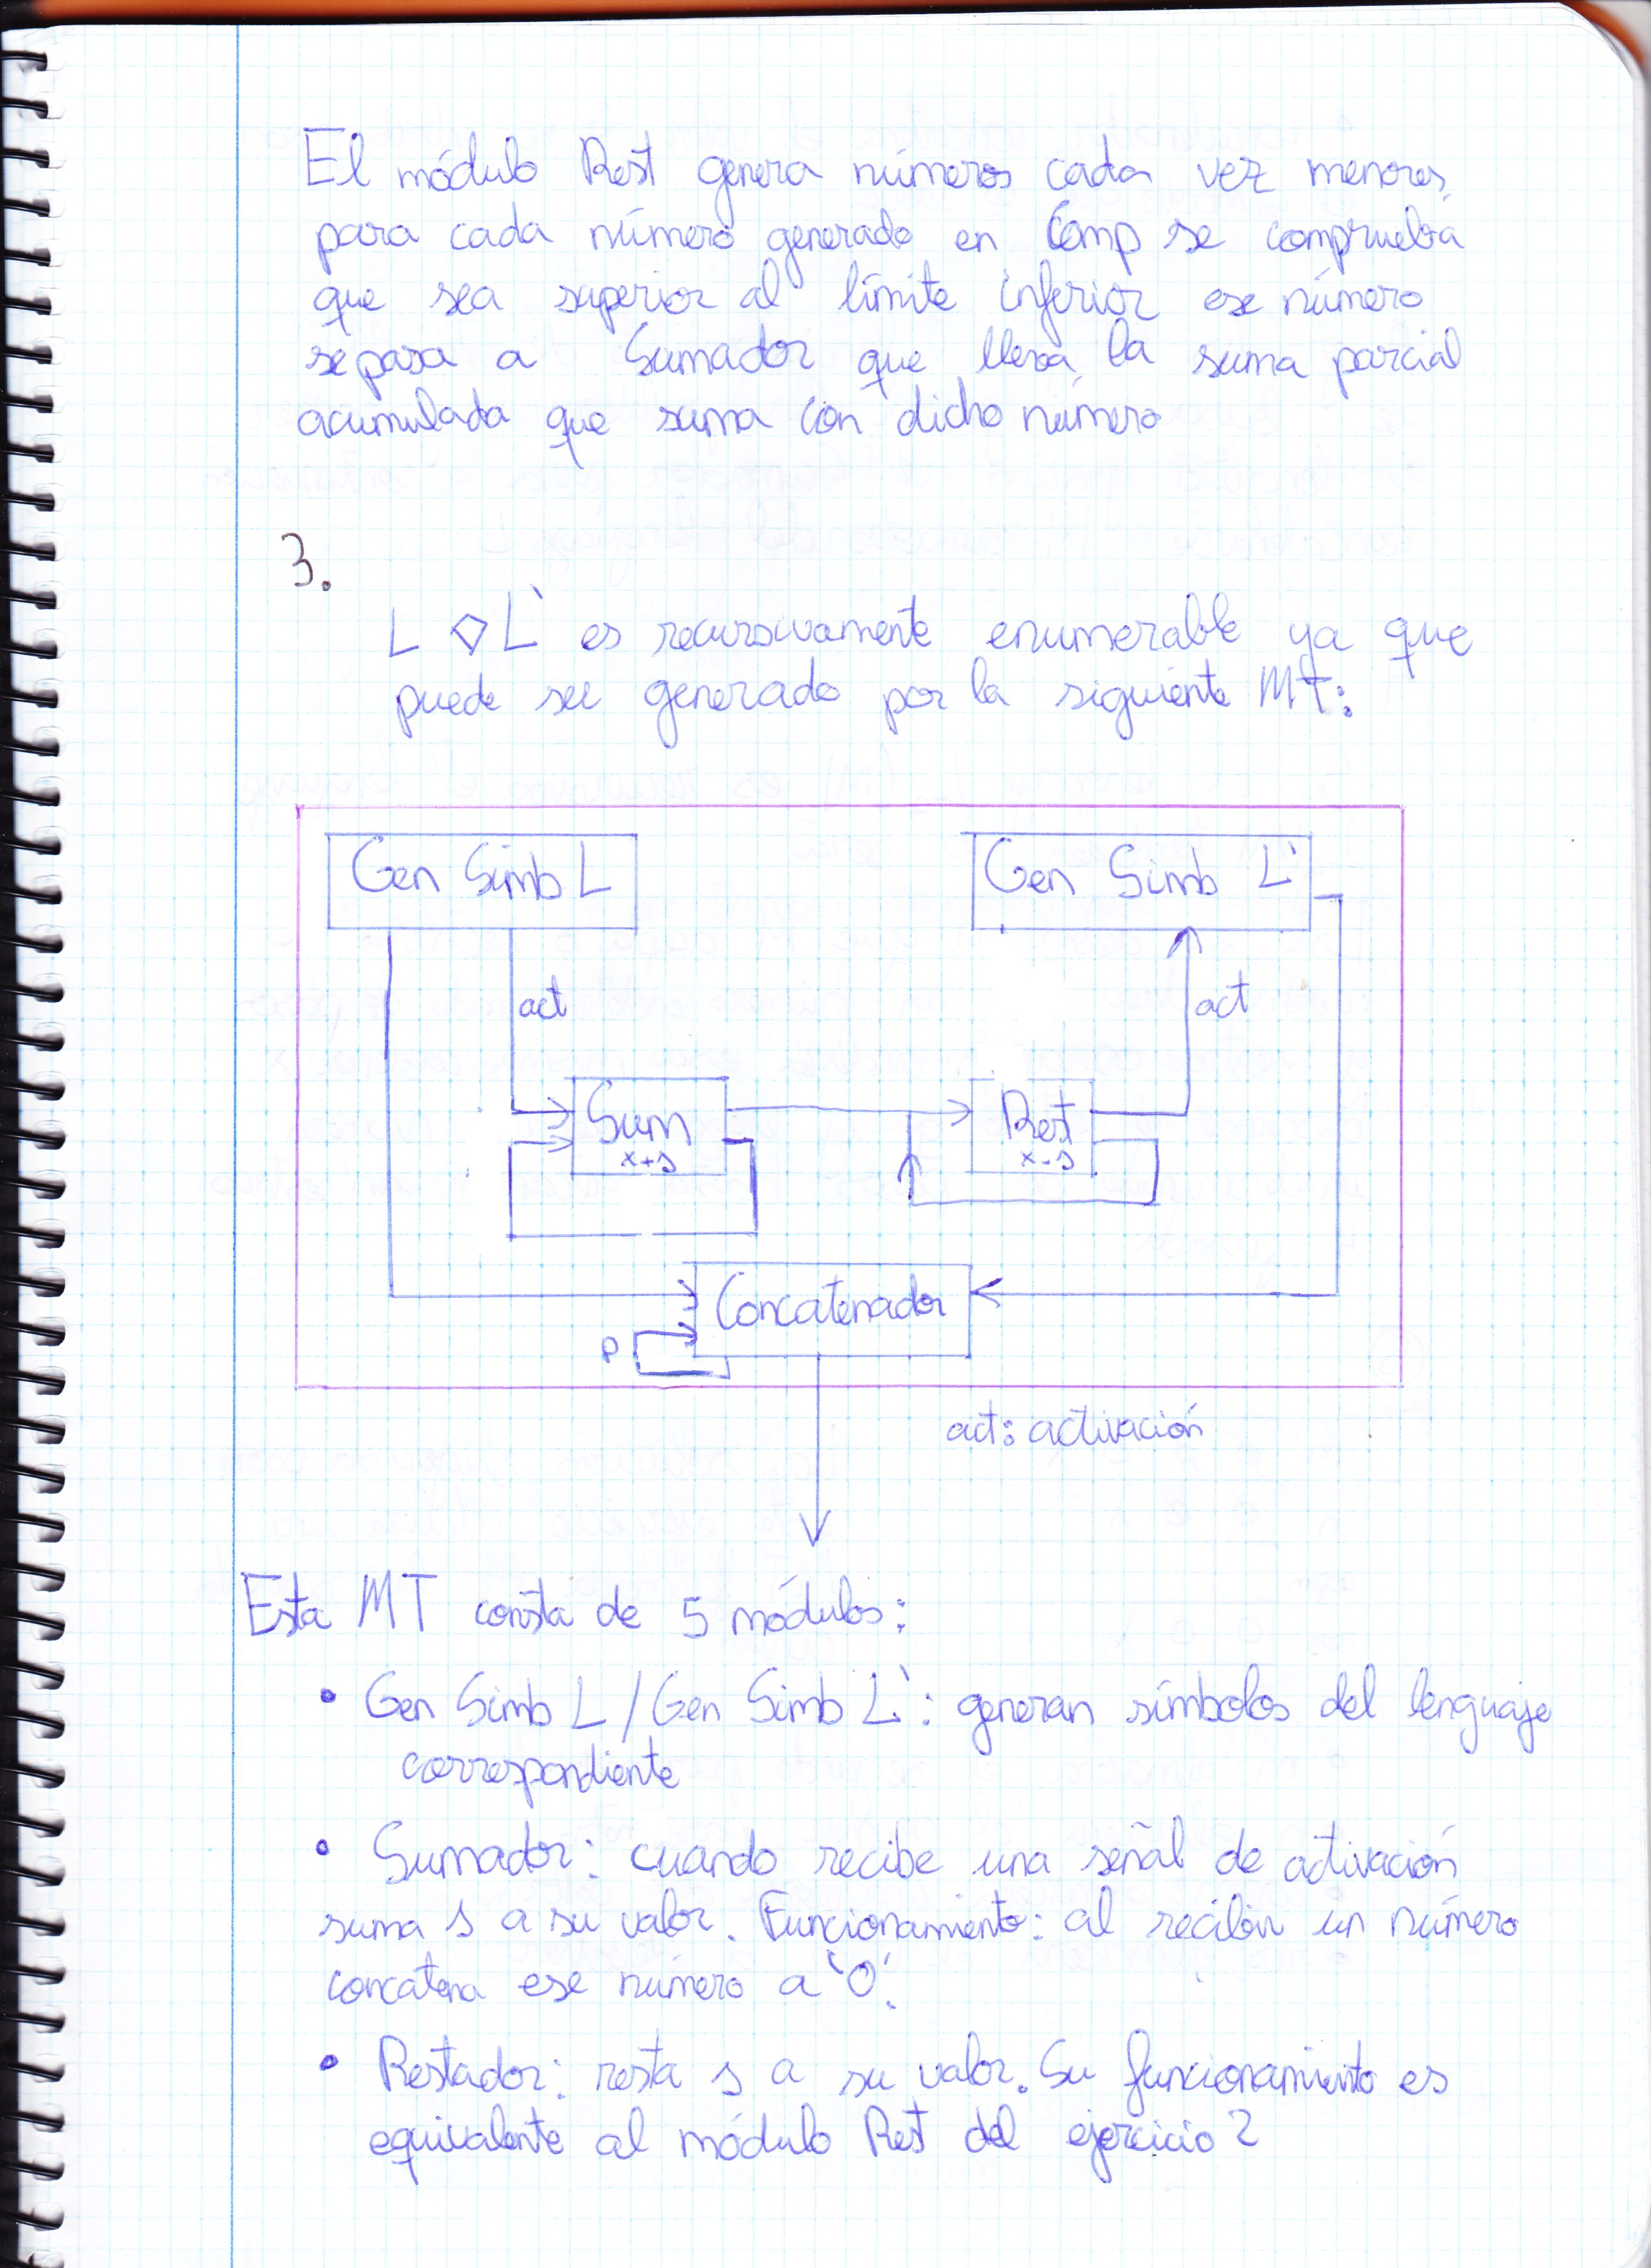 El módulo Rest genera números cada vez menores,
para cada número generado en Comp se comprueba
que sea superior al límite inferior ese número
se pasa a Sumador que lleva la suma parcial
acumulada que suma con dicho número
3.
L ◇ L' es recursivamente enumerable ya que
puede ser generado por la siguiente MT:
Gen Simb L
Gen Simb L'
act
act
Sum
x+s
Rest
x-s
Concatenador
P
act: activación
Esta MT consta de 5 módulos:
• Gen Simb L / Gen Simb L': generan símbolos del lenguaje
correspondiente
• Sumador: cuando recibe una señal de activación
suma s a su valor. Funcionamiento: al recibir un número
concatena ese número a '0'.
• Restador: resta s a su valor. Su funcionamiento es
equivalente al módulo Rest del ejercicio 2